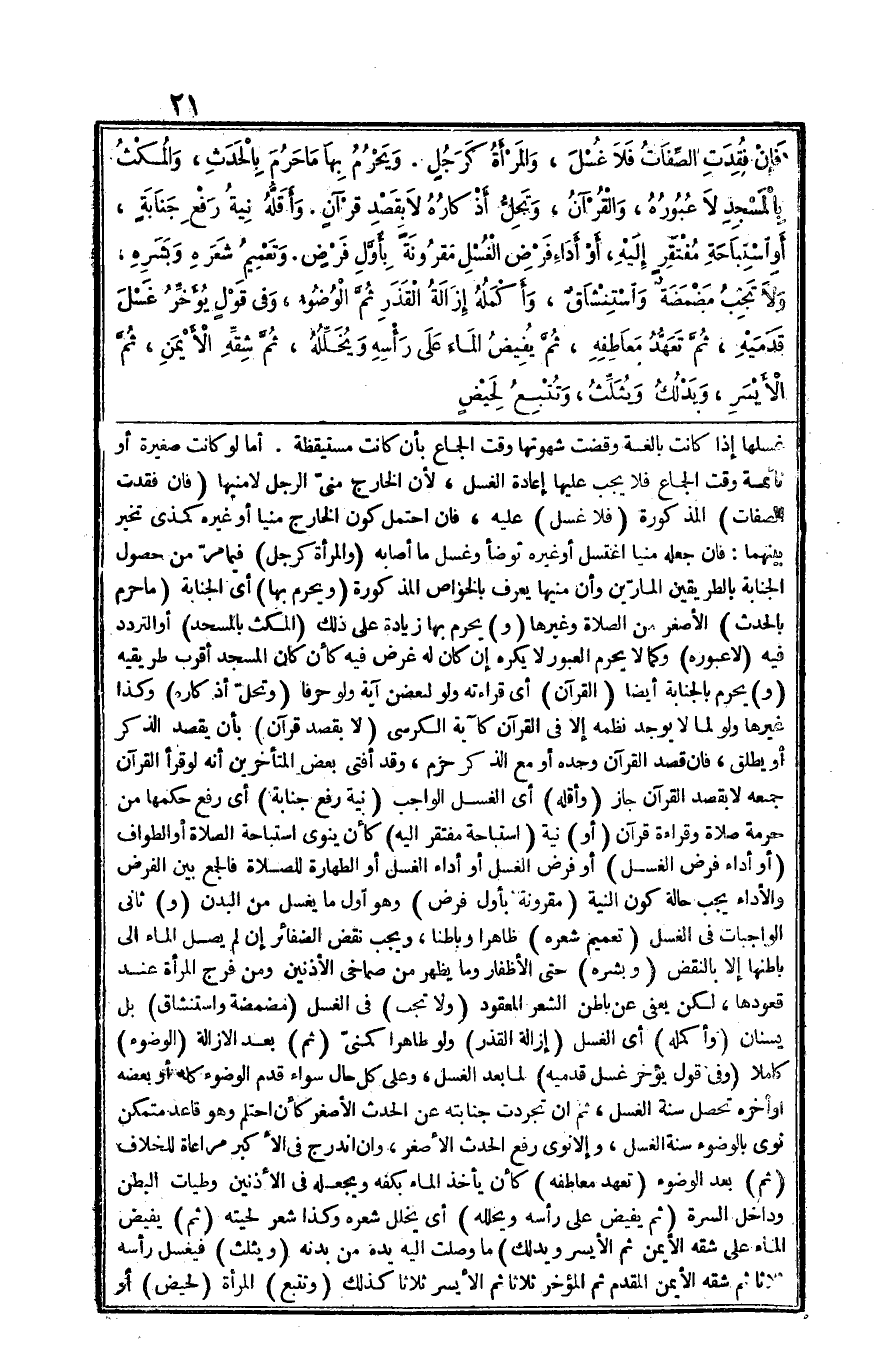 ٢١
فَإِنْ فُقِدَتِ الصِّفَاتُ فَلاَ غُسْلَ ، وَالمَرْأَةُ كَرَجُلٍ . وَيَحْرُمُ بِهَا مَاحَرُمَ بِالْحَدَثِ ، وَالْمُكْثُ
بِالْمَسْجِدِ لاَ عُبُورُهُ ، وَالْقُرْآنُ ، وَتَحِلُّ أَذْكَارُهُ لاَبِقَصْدِ قُرْآنٍ . وَأَقَلُّهُ نِيةُ رَفْعِ جَنَابَةٍ ،
أَوِ اسْتِبَاحَةِ مُفْتَقِرٍ إِلَيْهِ، أَوْ أَدَاءِ فَرْضِ الغُسْلِ مَقْرُونَةً بِأَوَّلِ فَرْضٍ . وَتَعْمِيمُ شَعَرِهِ وَبَشَرِهِ ،
وَلاَ تَجِبُ مَضْمَضَةٌ وَاسْتِنْشَاقٌ ، وَأَكْمَلُهُ إِزَالَةُ الْقَذَرِ ثُمَّ الْوُضُوءُ ، وَفى قَوْلٍ يُؤَخِّرُ غَسْلَ
قَدَمَيْهِ ، ثُمَّ تَعَهُّدُ مَعَاطِفِهِ ، ثُمَّ يُفِيضُ المَاءَ عَلَى رَأْسِهِ وَيُخَلِّلُهُ ، ثُمَّ شِقِّهِ الْأَيْمَنِ ، ثُمَّ
الْأَيْسَرِ ، وَيَدْلُكُ وَيُثَلِّثُ ، وَتُتْبِعُ لِحَيْضٍ
غسلها إذا كانت بالغة وقضت شهوتها وقت الجماع بأن كانت مستيقظة . أما لو كانت صغيرة أو
نائمة وقت الجماع فلا يجب عليها إعادة الغسل ، لأن الخارج منىّ الرجل لامنيها ( فان فقدت
الصفات ) المذكورة ( فلا غسل ) عليه ، فان احتمل كون الخارج منيا أو غيره كمذى تخير
بينهما : فان جعله منيا اغتسل أوغيره توضأ وغسل ما أصابه ( والمرأة كرجل ) فيما مرّ من حصول
الجنابة بالطريقين المارّين وأن منيها يعرف بالخواص المذكورة ( ويحرم بها ) أى الجنابة ( ماحرم
بالحدث ) الأصغر من الصلاة وغيرها ( و ) يحرم بها زيادة على ذلك ( المكث بالمسجد ) أوالتردد
فيه ( لاعبوره ) وكما لا يحرم العبور لا يكره إن كان له غرض فيه كأن كان المسجد أقرب طريقيه
( و ) يحرم بالجنابة أيضا ( القرآن ) أى قراءته ولو لبعض آية ولو حرفا ( وتحلّ أذكاره ) وكذا
غيرها ولو لما لا يوجد نظمه إلا فى القرآن كآية الكرسى ( لا بقصد قرآن ) بأن يقصد الذكر
أو يطلق ، فان قصد القرآن وحده أو مع الذكر حرم ، وقد أفتى بعض المتأخرين أنه لوقرأ القرآن
جميعه لابقصد القرآن جاز ( وأقله ) أى الغسل الواجب ( نية رفع جنابة ) أى رفع حكمها من
حرمة صلاة وقراءة قرآن ( أو ) نية ( استباحة مفتقر اليه ) كأن ينوى استباحة الصلاة أوالطواف
( أو أداء فرض الغسل ) أو فرض الغسل أو أداء الغسل أو الطهارة للصلاة فالجمع بين الفرض
والأداء يجب حالة كون النية ( مقرونة بأول فرض ) وهو أول ما يغسل من البدن ( و ) ثانى
الواجبات فى الغسل ( تعميم شعره ) ظاهرا وباطنا ، ويجب نقض الضفائر إن لم يصل الماء الى
باطنها إلا بالنقض ( وبشره ) حتى الأظفار وما يظهر من صماخى الأذنين ومن فرج المرأة عند
قعودها ، لكن يعفى عن باطن الشعر المعقود ( ولا تجب ) فى الغسل ( مضمضة واستنشاق ) بل
يسنان ( وأكمله ) أى الغسل ( إزالة القذر ) ولو طاهرا كمنىّ ( ثم ) بعد الازالة ( الوضوء )
كاملا ( وفى قول يؤخر غسل قدميه ) لما بعد الغسل ، وعلى كل حال سواء قدم الوضوء كله أو بعضه
اوأخره تحصل سنة الغسل ، ثم ان تجردت جنابته عن الحدث الأصغر كأن احتلم وهو قاعد متمكن
نوى بالوضوء سنة الغسل ، وإلا نوى رفع الحدث الأصغر ، وان اندرج فى الأكبر مراعاة للخلاف
( ثم ) بعد الوضوء ( تعهد معاطفه ) كأن يأخذ الماء بكفه ويجعله فى الأذنين وطيات البطن
وداخل السرة ( ثم يفيض على رأسه ويخلله ) أى يخلل شعره وكذا شعر لحيته ( ثم ) يفيض
الماء على شقه الأيمن ثم الأيسر ويدلك ) ما وصلت اليه يده من بدنه ( ويثلث ) فيغسل رأسه
ثلاثا ثم شقه الأيمن المقدم ثم المؤخر ثلاثا ثم الأيسر ثلاثا كذلك ( وتتبع ) المرأة ( لحيض ) أو